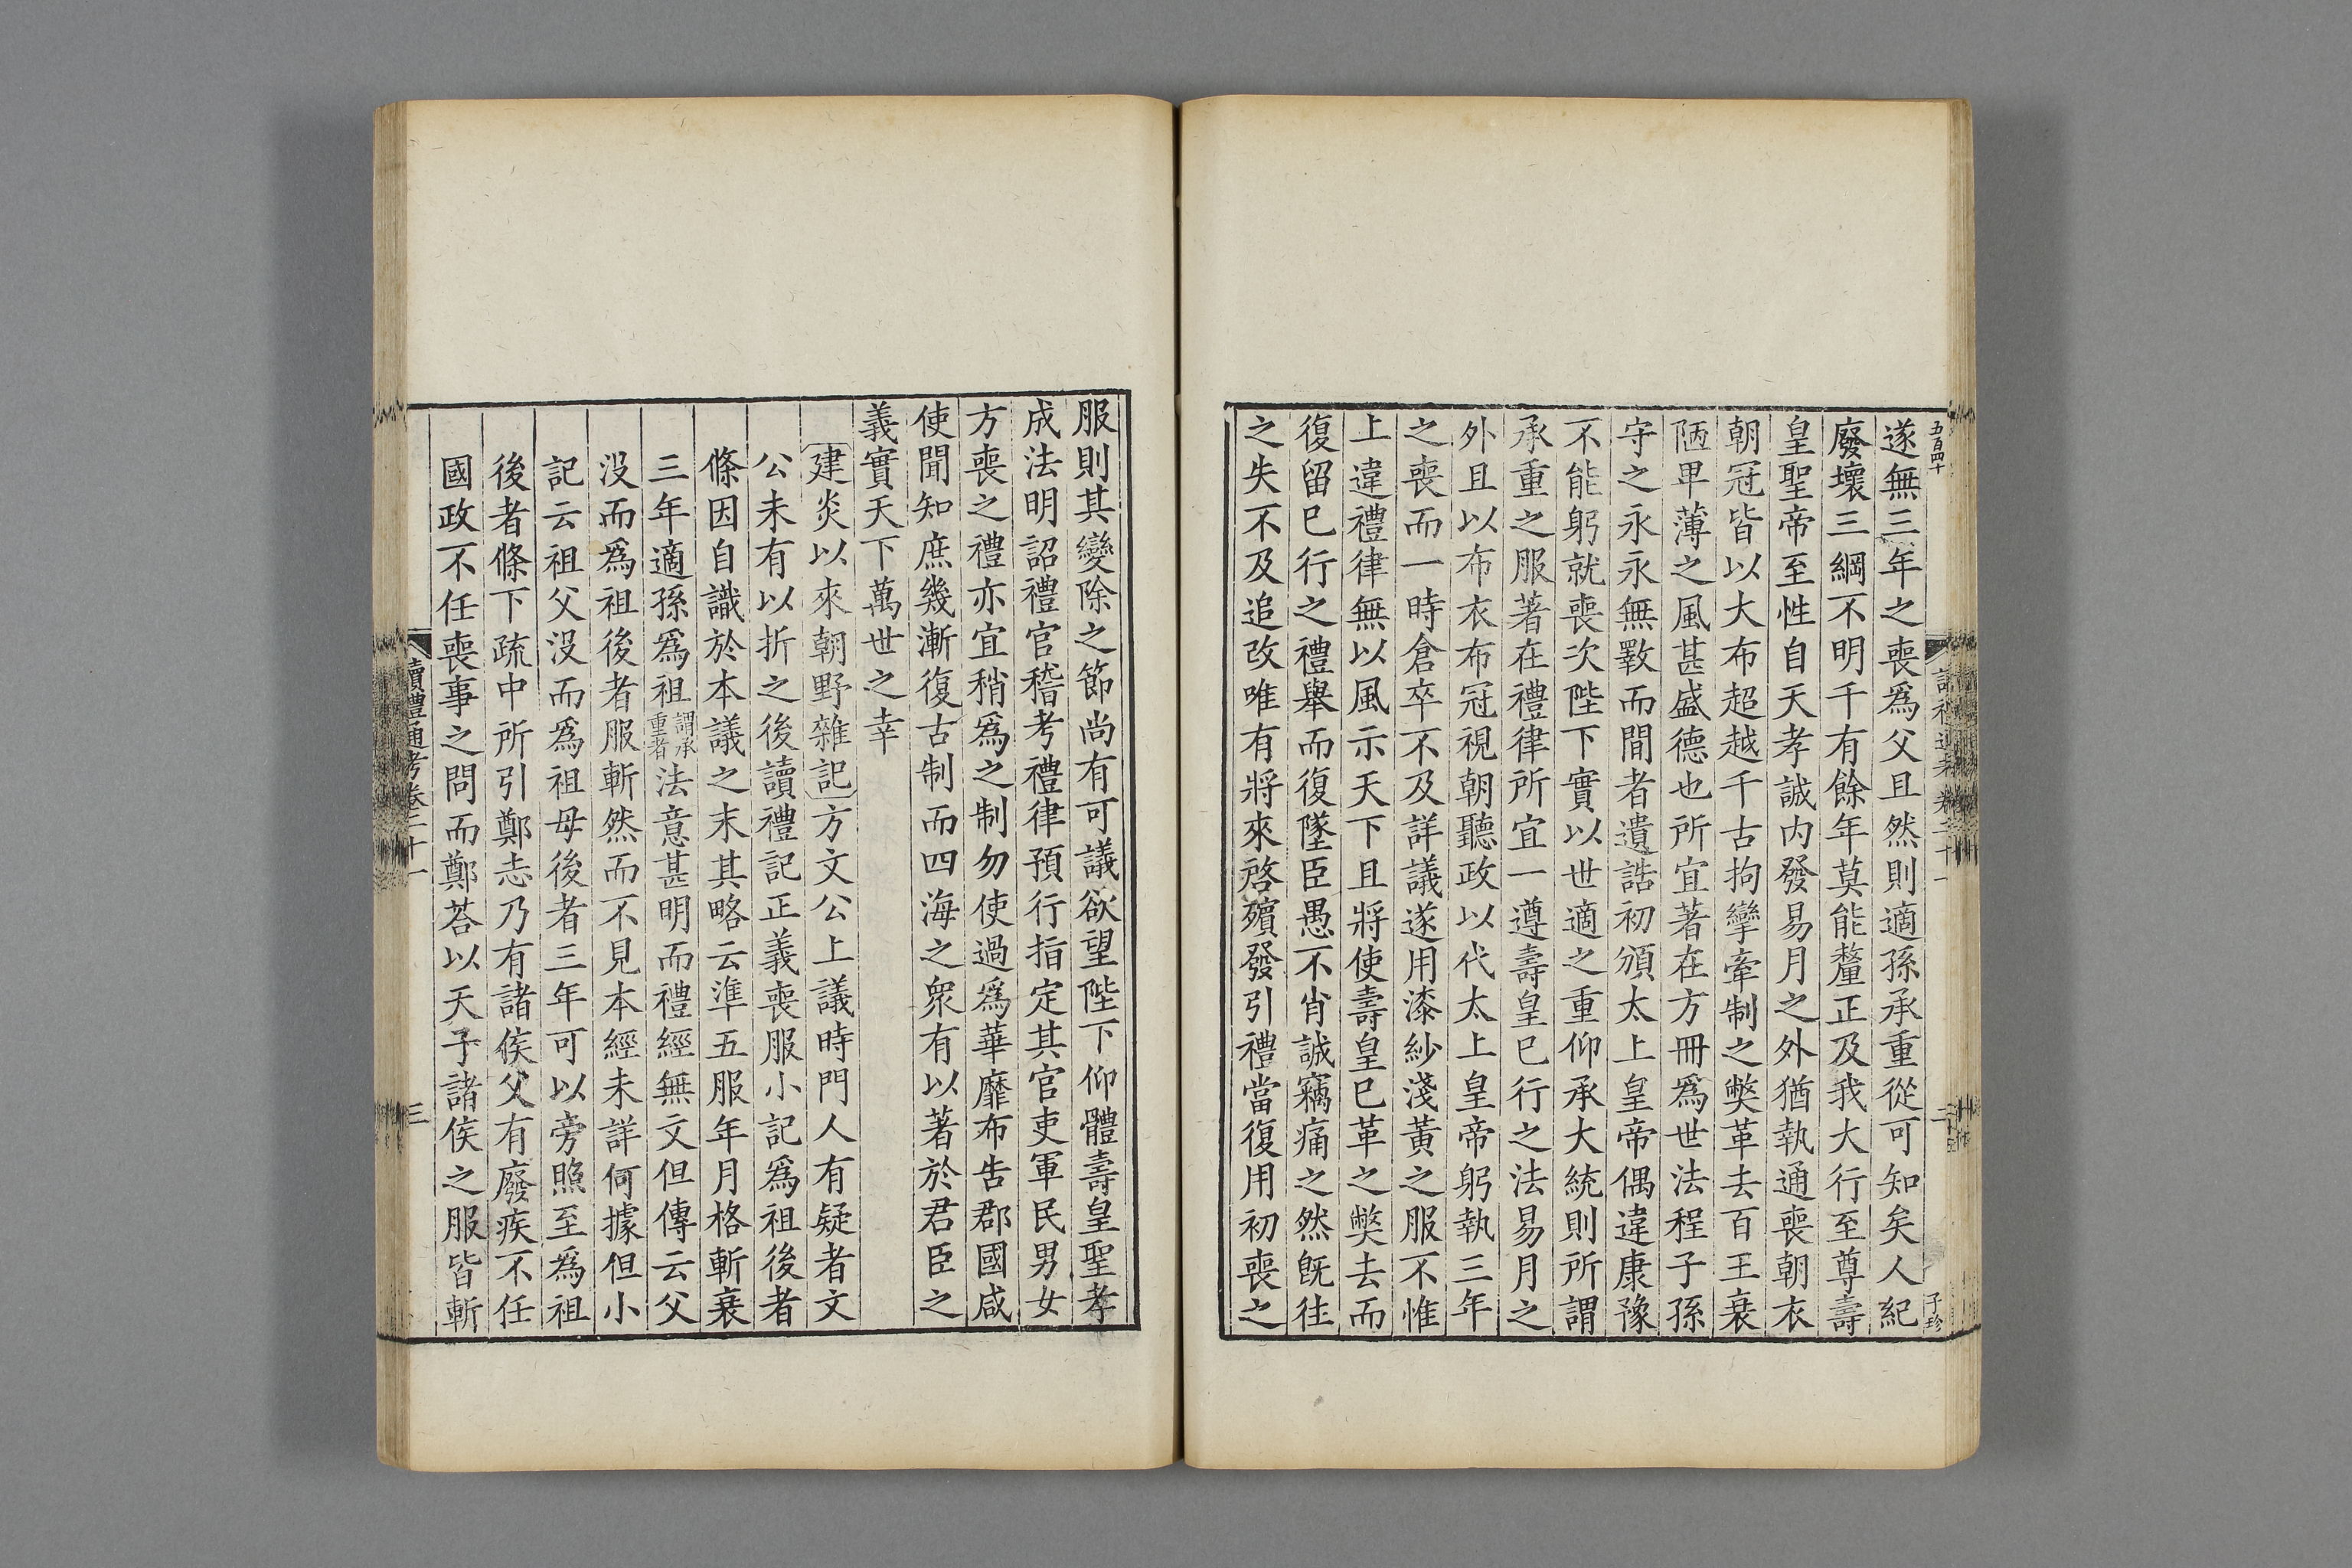 五百四十
遂無三年之喪爲父且然則適孫承重從可知矣人紀
廢壞三綱不明千有餘年莫能釐正及我大行至尊壽
皇聖帝至性自天孝誠内發易月之外猶執通喪朝衣
朝冠皆以大布超越千古拘攣牽制之獘革去百王衰
陋甲薄之風甚盛德也所宜著在方冊爲世法程子孫
守之永永無斁而閒者遺誥初頒太上皇帝偶違康豫
不能躬就喪次陛下實以世適之重仰承大統則所謂
承重之服著在禮律所宜一遵壽皇已行之法易月之
外且以布衣布冠視朝聽政以代太上皇帝躬執三年
之喪而一時倉卒不及詳議遂用漆紗淺黃之服不惟
上違禮律無以風示天下且將使壽皇已革之獘去而
復留已行之禮舉而復墜臣愚不肖誠竊痛之然旣往
之失不及追改唯有將來啓殯發引禮當復用初喪之
子珍
服則其變除之節尚有可議欲望陛下仰體壽皇聖孝
成法明詔禮官稽考禮律預行指定其官吏軍民男女
方喪之禮亦宜稍爲之制勿使過爲華靡布告郡國咸
使聞知庶幾漸復古制而四海之衆有以著於君臣之
義實天下萬世之幸
建炎以來朝野雜記方文公上議時門人有疑者文
公未有以折之後讀禮記正義喪服小記爲祖後者
條因自識於本議之末其略云準五服年月格斬衰
三年適孫爲祖謂承重者法意甚明而禮經無文但傳云父
没而爲祖後者服斬然而不見本經未詳何據但小
記云祖父没而爲祖母後者三年可以旁照至爲祖
後者條下疏中所引鄭志乃有諸侯父有廢疾不任
國政不任喪事之問而鄭荅以天子諸侯之服皆斬
讀禮通考卷二十一
三